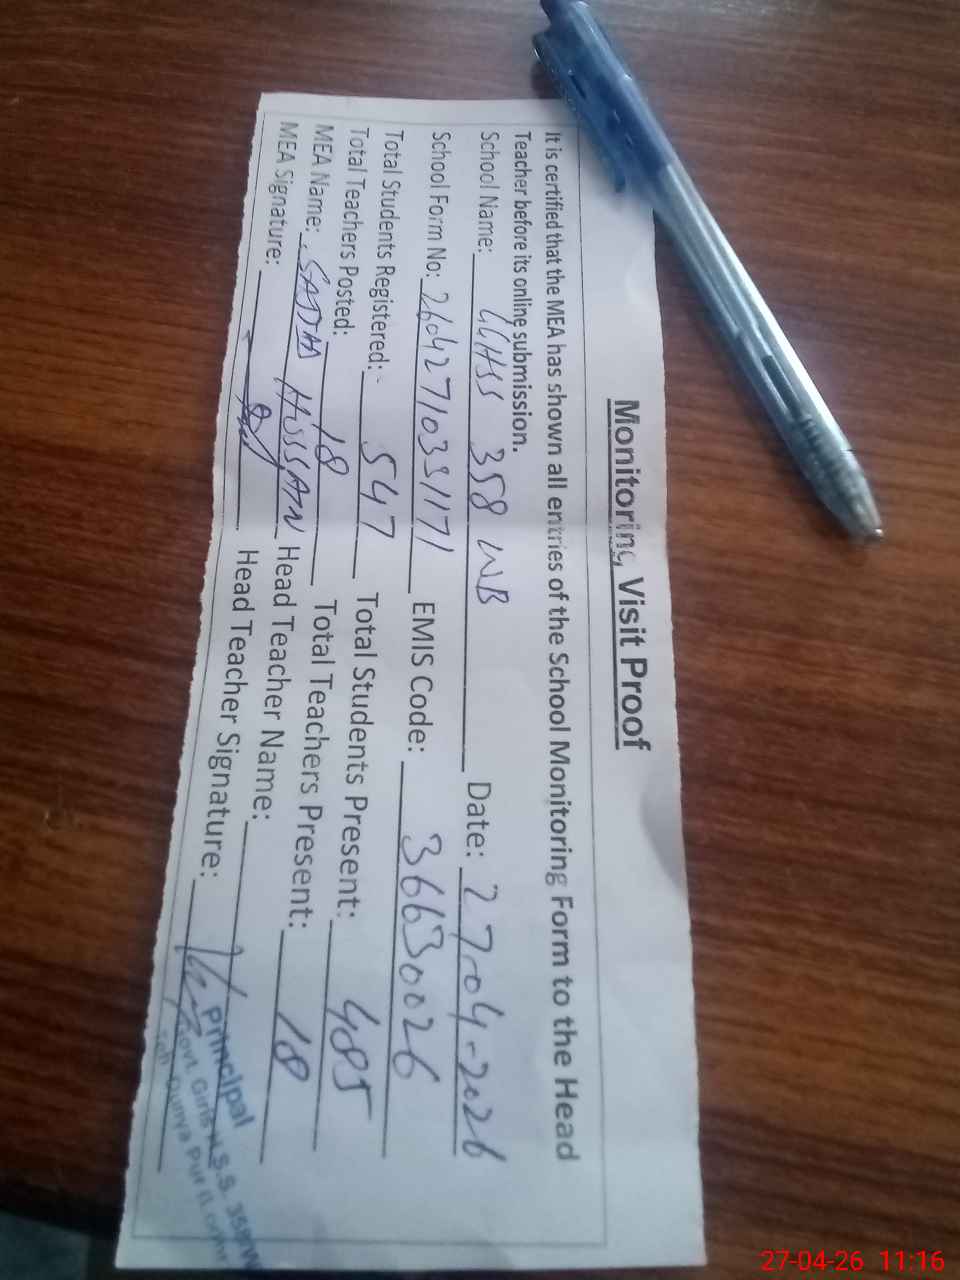 Monitoring Visit Proof
It is certified that the MEA has shown all entries of the School Monitoring Form to the Head
Teacher before its online submission.
School Name: GGHSS 358 WB Date: 27-04-2026
School Form No: 26042710351171 EMIS Code: 36630026
Total Students Registered: 547 Total Students Present: 485
Total Teachers Posted: 18 Total Teachers Present: 18
MEA Name: SADDAM HUSSAIN Head Teacher Name:
MEA Signature: Head Teacher Signature:
Principal
Govt. Girls H.S.S. 358/W
Dunya Pur
27-04-26 11:16